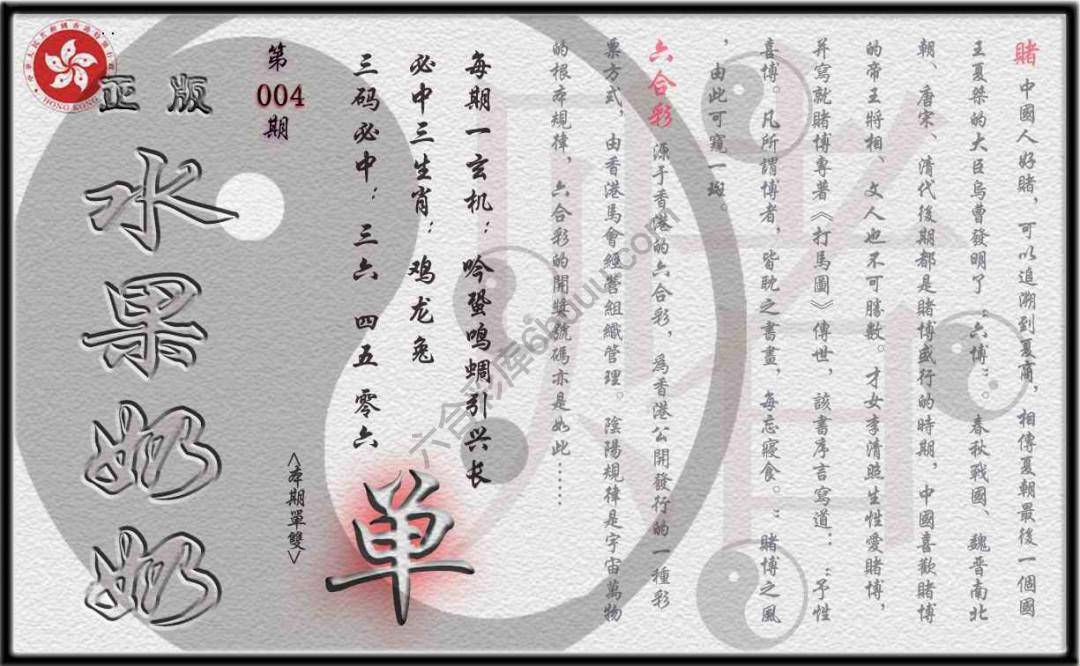 賭 中國人好賭，可以追溯到夏商，相傳夏朝最後一個國
王夏桀的大臣烏曹發明了“六博”。春秋戰國、魏晉南北
朝、唐宋、清代後期都是賭博盛行的時期，中國喜歡賭博
的帝王將相、文人也不可勝數。才女李清照生性愛賭博，
并寫就賭博專著《打馬圖》傳世，該書序言寫道：“予性
喜博。凡所謂博者，皆耽之書晝，每忘寢食。”賭博之風
，由此可窺一斑。
六合彩 源于香港的六合彩，爲香港公開發行的一種彩
票方式，由香港馬會經營組織管理。陰陽規律是宇宙萬物
的根本規律，六合彩的開獎號碼亦是如此……
每期一玄机：吟蛩鸣蜩引兴长
必中三生肖：鸡龙兔
三码必中：三六 四五 零六
单
<本期單雙>
第
004
期
正版
水果奶奶
HONG KONG
六合彩库66uuu.com